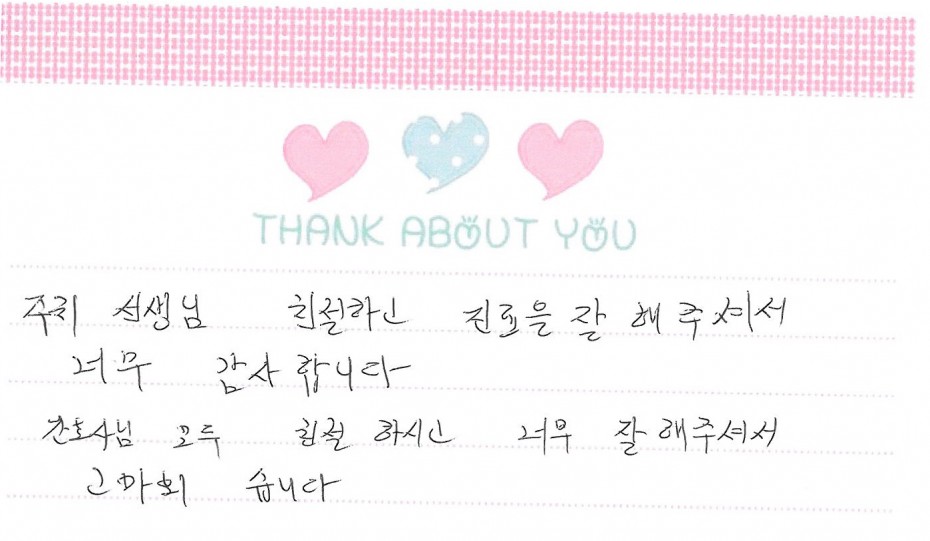 THANK ABOUT YOU
주치 선생님 친절하신 진료을 잘 해 주셔서
너무 감사 합니다
간호사님 모두 친절 하시고 너무 잘 해주셔서
고마워 습니다